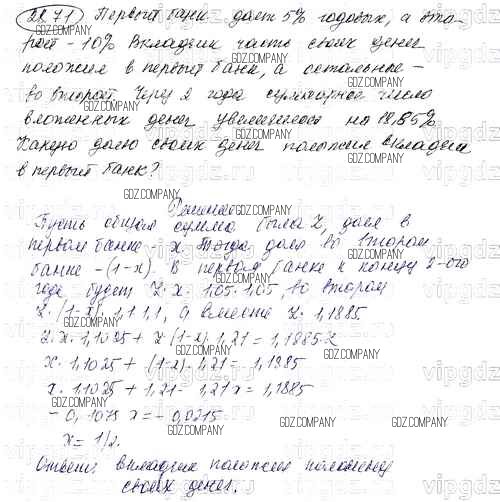 28.71 Первый банк дает 5% годовых, а вто-
рой - 10% Вкладчик часть своих денег
положил в первый банк, а остальные -
во второй. Через 2 года суммарное число
вложенных денег увеличилось на 18,85%
Какую долю своих денег положил вкладчик
в первый банк?
Решение
Пусть общая сумма была Z, доля в
первом банке - x. Тогда доля во втором
банке - (1-x). В первом банке к концу 2-ого
года будет Z·x·1,05·1,05, во втором
Z·(1-x)·1,1·1,1, а вместе Z·1,1885
Z·x·1,1025 + Z·(1-x)·1,21 = 1,1885·Z
x·1,1025 + (1-x)·1,21 = 1,1885
x·1,1025 + 1,21 - 1,21x = 1,1885
- 0,1075 x = - 0,0215
x = 1/2.
Ответ: вкладчик положил половину
своих денег.
GDZ.COMPANY
vipgdz